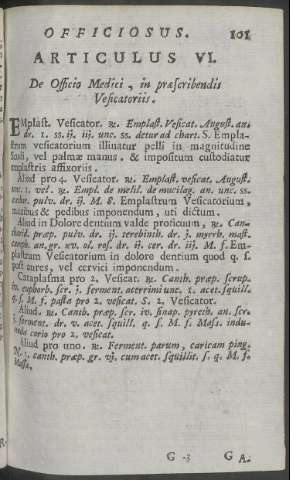 OFFICIOSUS. 101
ARTICULUS VI.
De Officio Medici, in præscribendis
Vesicatoriis.
EMplast. Vesicator. ℞. Emplast. Vesicat. August. an.
dr. 1. ss. ij. iij. unc. ss. detur ad chart. S. Empla-
strum vesicatorium illinatur pelli in magnitudine
vel palmæ manus. & impositum custodiatur
emplastris affixoriis.
Aliud pro 4. Vesicator. ℞. Emplast. vesicat. August.
unc. 1. vel. ℞. Empl. de melil. de mucilag. an. unc. ss.
pulv. dr. ij. M. S. Emplastrum Vesicatorium,
manibus & pedibus imponendum, uti dictum.
Aliud in Dolore dentium valde proficuum, ℞. Can-
præp. pulv. dr. ij. terebinth. dr. 3. myrrh. mast.
an. gr. xv. ol. ros. dr. ij. cer. dr. iij. M. f. Em-
plastrum Vesicatorium in dolore dentium quod q. s.
post aures, vel cervici imponendum.
Cataplasma pro 2. Vesicat. ℞. Canth. præp. scrup.
iv. euphorb. scr. j. ferment. acerrimi unc. 1. acet. squill.
q. s. M. f. pasta pro 2. vesicat. S. 2. Vesicator.
Aliud. ℞. Canth. præp. scr. iv. sinap. pyreth. an. scr.
ferment. dr. v. acet. squill. q. s. M. f. Mass. indu-
corio pro 2. vesicat.
Aliud pro uno. ℞. Ferment. parum, caricam ping.
N. 1. canth. præp. gr. vj. cum acet. squillit. s. q. M. f.
Massa.
G 3 GA.